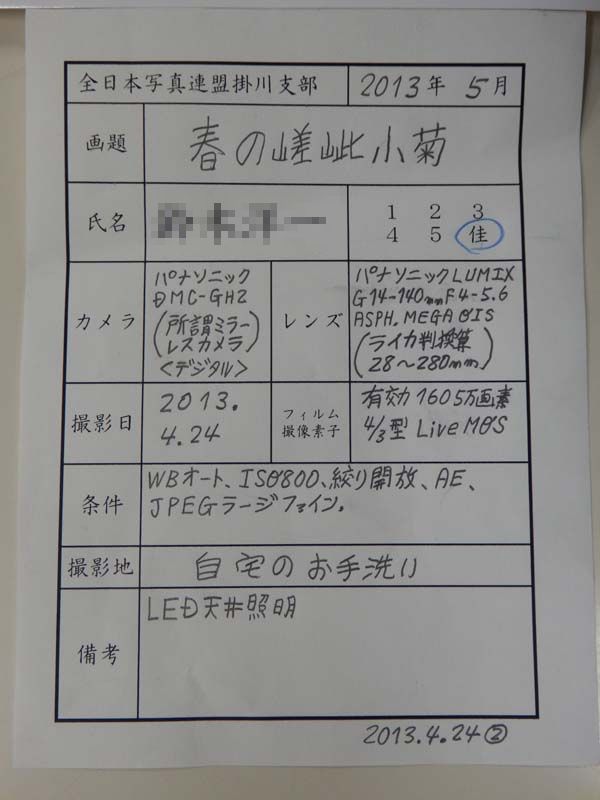 全日本写真連盟掛川支部 2013年 5月
画題 春の嵯峨小菊
氏名 1 2 3
4 5 佳
カメラ
パナソニック
DMC-GH2
(所謂ミラー
レスカメラ)
<デジタル>
レンズ
パナソニックLUMIX
G14-140mmF4-5.6
ASPH. MEGA OIS
(ライカ判換算
28〜280mm)
撮影日
2013.
4.24
フィルム
撮像素子
有効1605万画素
4/3型 LiveMOS
条件
WBオート、ISO800、絞り開放、AE、
JPEGラージファイン.
撮影地 自宅のお手洗い
備考
LED天井照明
2013.4.24②